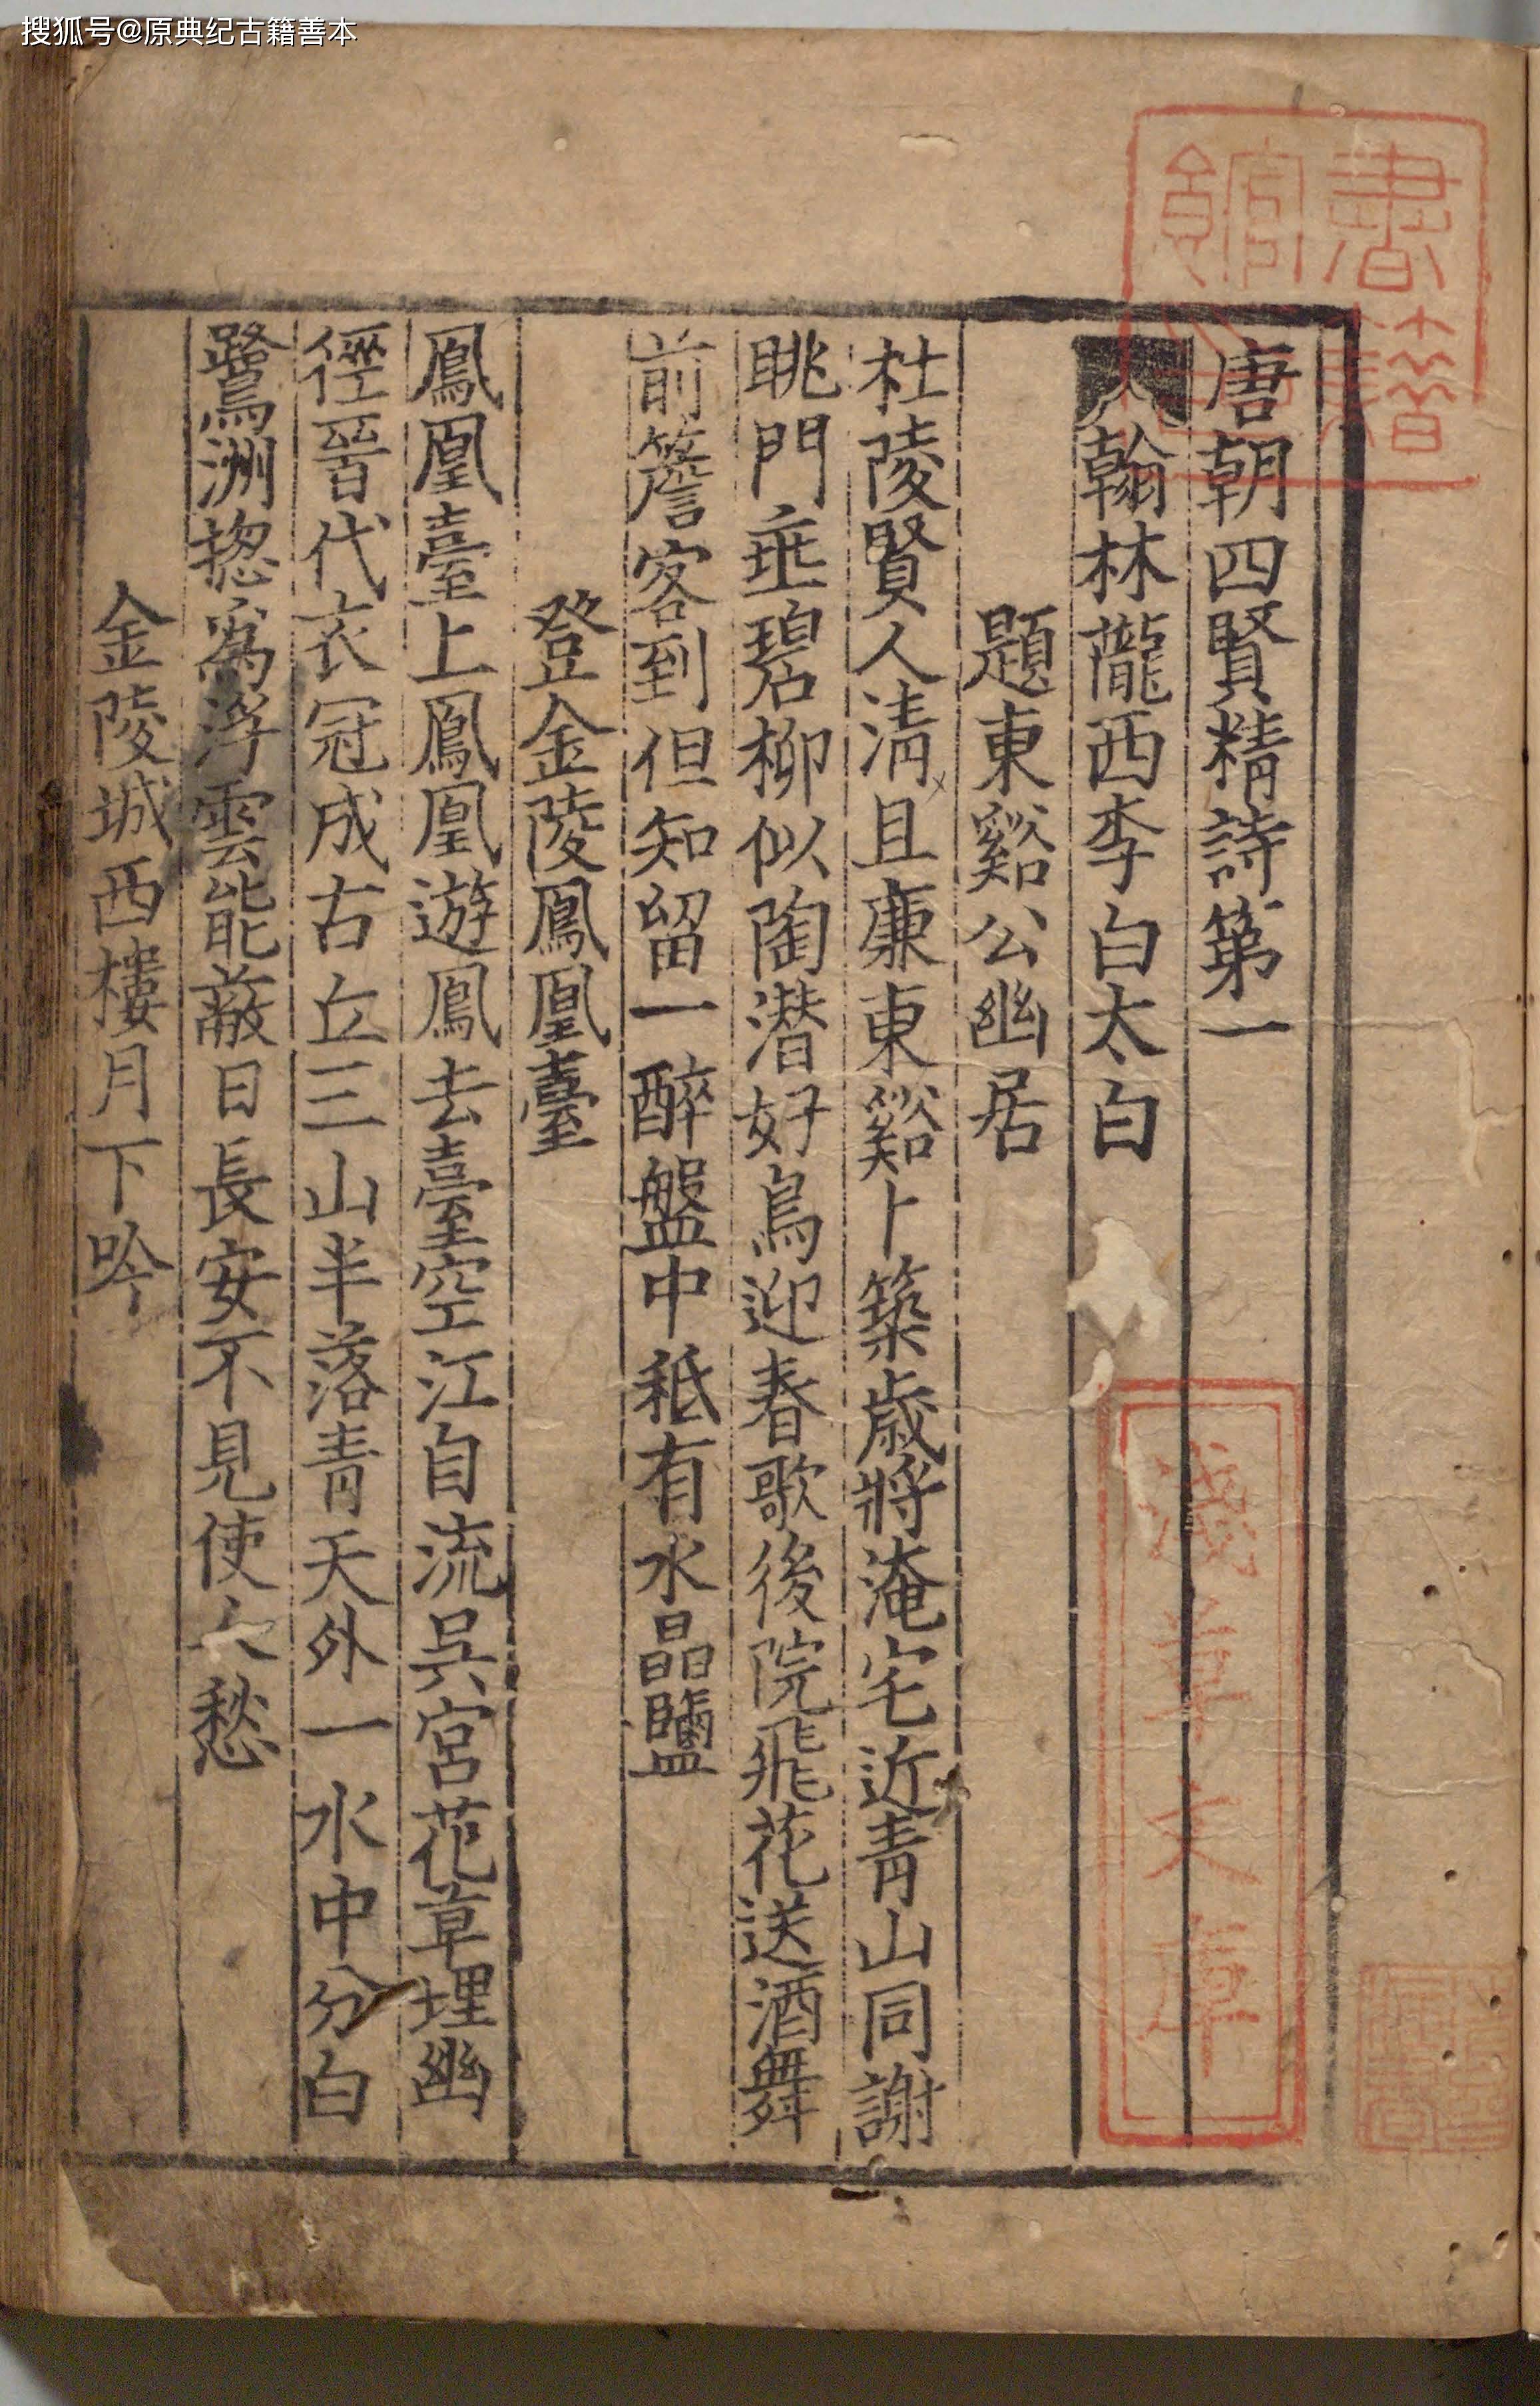 搜狐号@原典纪古籍善本
唐朝四賢精詩第一
翰林隴西李白太白
題東谿公幽居
杜陵賢人清且廉東谿卜築歲將淹宅近青山同謝
眺門垂碧柳似陶潜好鳥迎春歌後院飛花送酒舞
前簷客到但知留一醉盤中秖有水晶鹽
登金陵鳳凰臺
鳳凰臺上鳳凰遊鳳去臺空江自流吳宮花草埋幽
徑晉代衣冠成古丘三山半落青天外一水中分白
鷺洲揔爲浮雲能蔽日長安不見使人愁
金陵城西樓月下吟